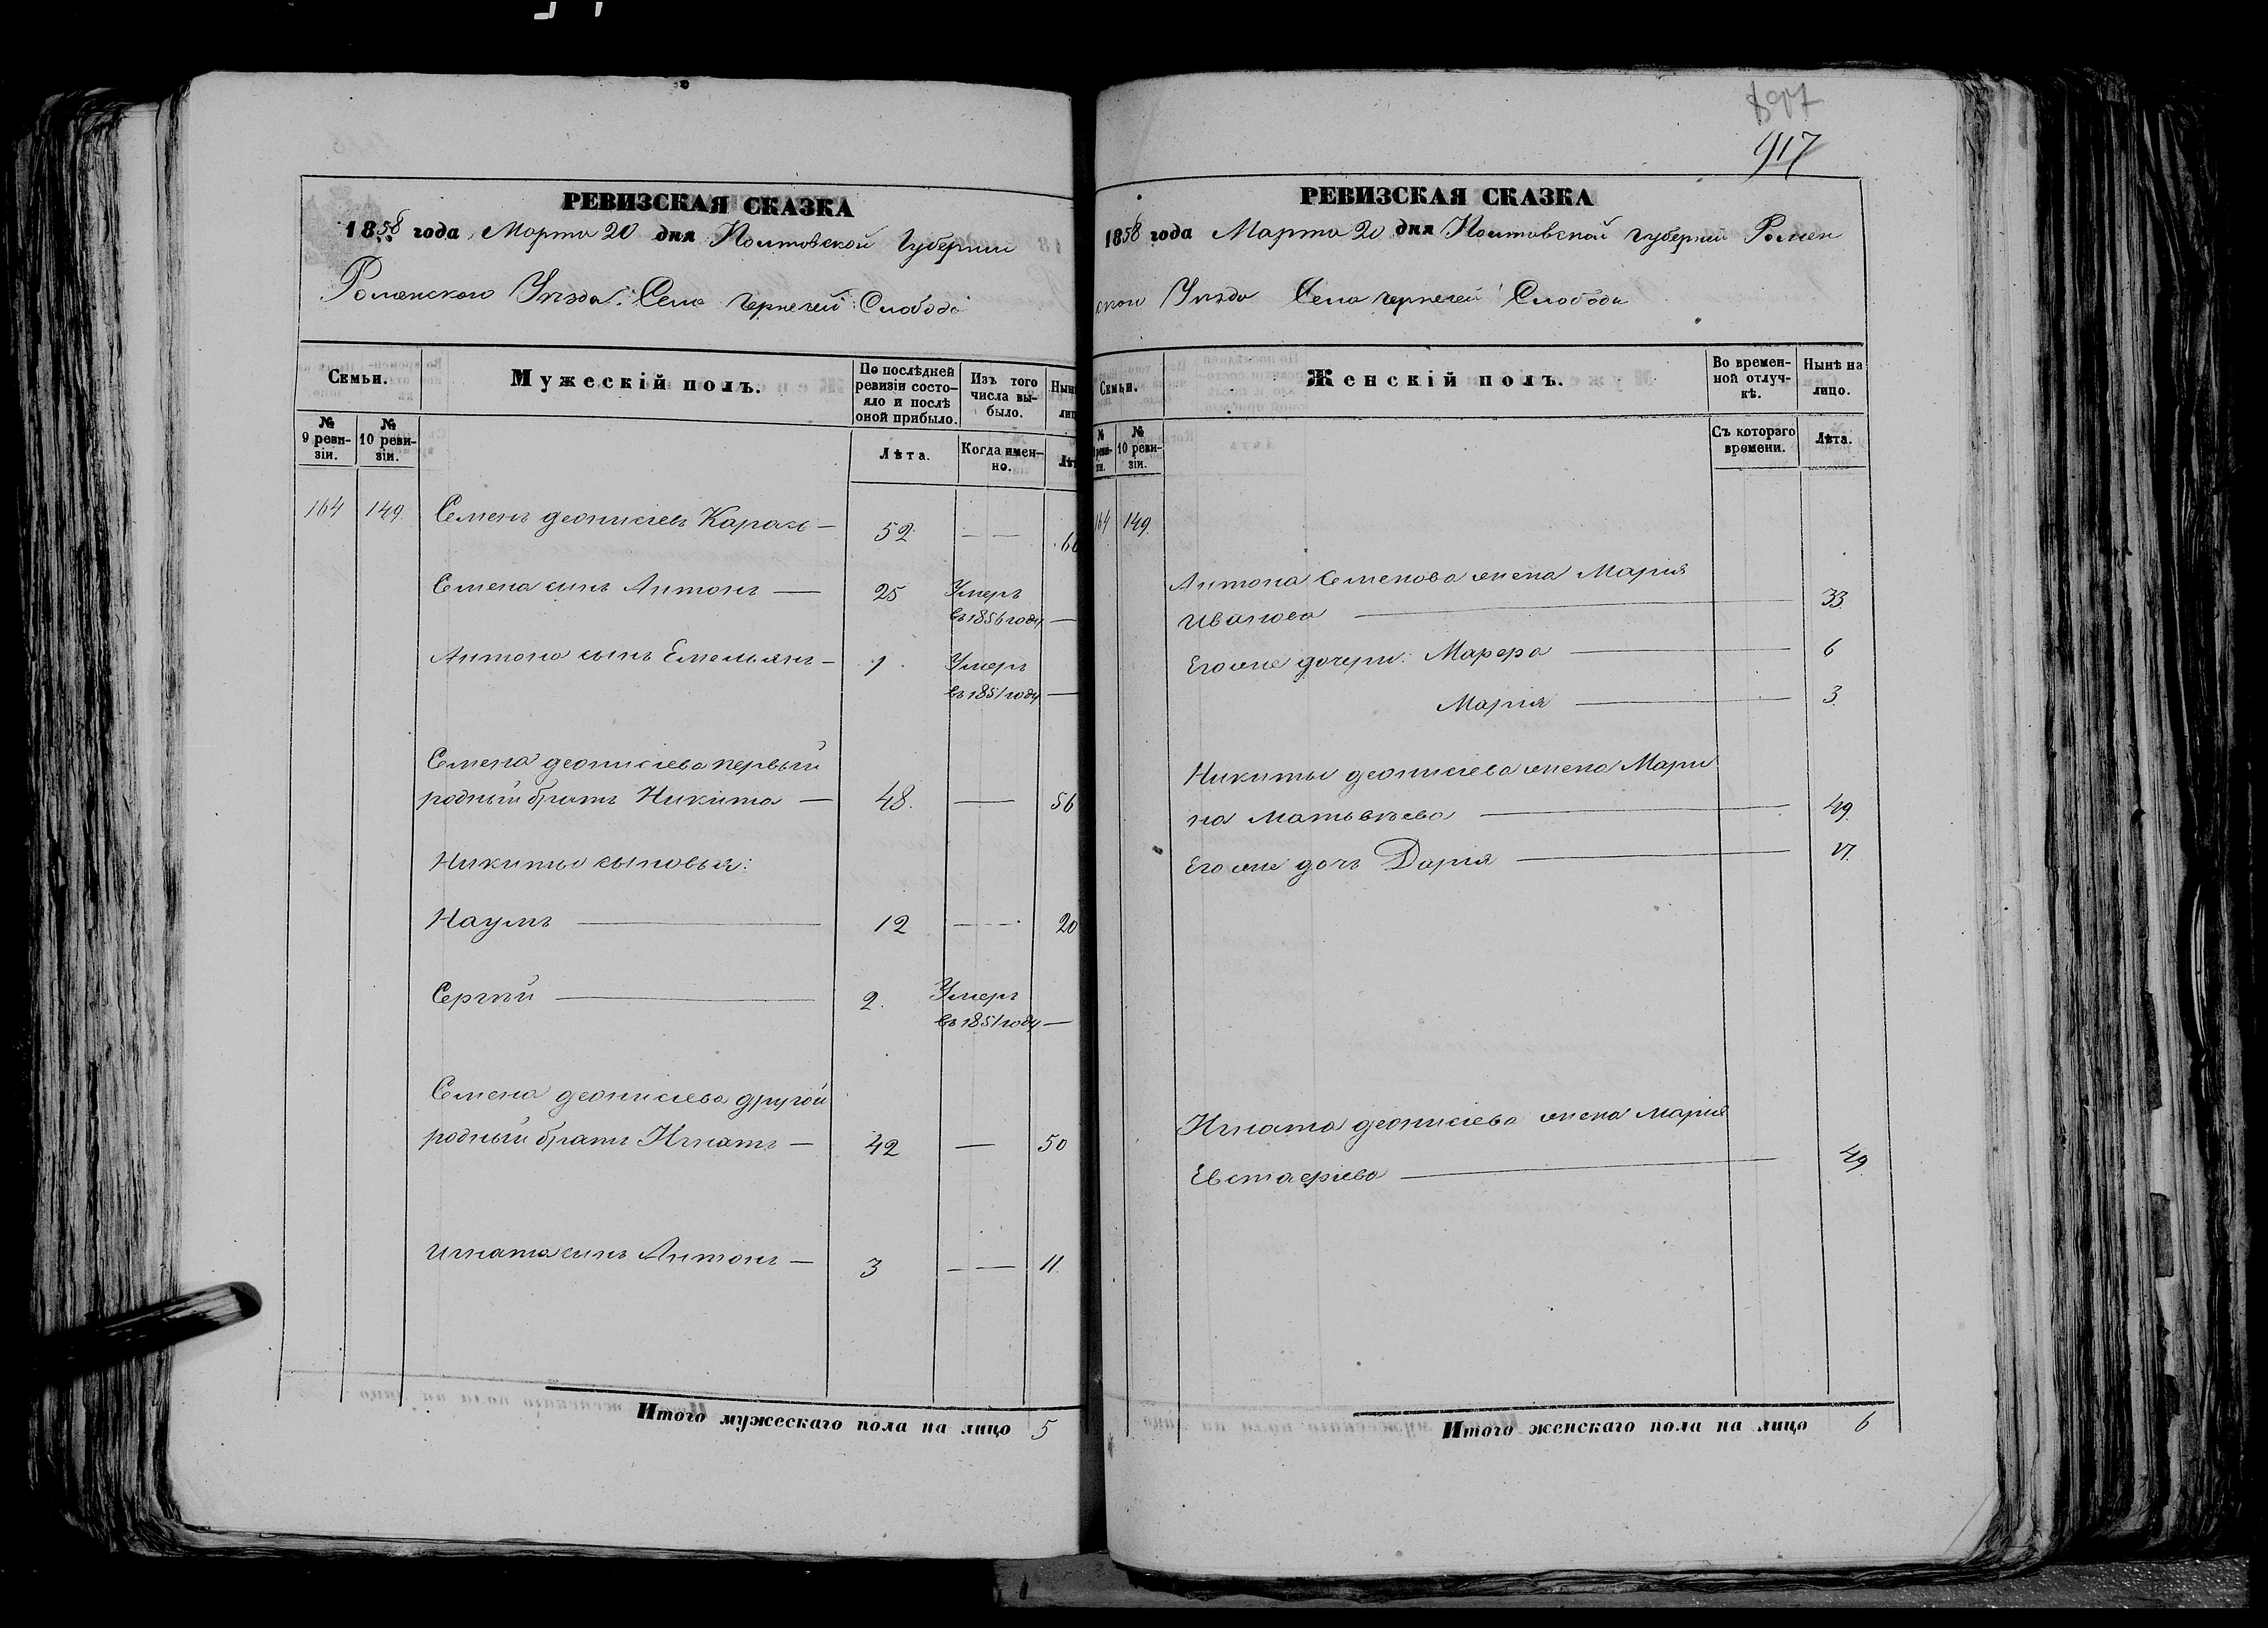 РЕВИЗСКАЯ СКАЗКА
1858 года Марта 20 дня Полтавской Губернии
Роменского Уезда. Села Чернечей Слободы
Семьи.
Мужескій полъ.
По послѣдней ревизіи состояло и послѣ оной прибыло.
Изъ того числа выбыло.
Нын
лиц
№ 9 ревизіи.
№ 10 ревизіи.
Лѣта.
Когда именно.
Лѣт
164 149. Семенъ деонисіевъ Карась — 52. — — 60
Семена синъ Антонъ — 25 Умеръ
въ 1856 году —
Антона сынъ Емельянъ — 1. Умеръ
въ 1851 году —
Семена деонисіева первый
родный братъ Никита — 48. — 56
Никиты сыновья:
Наумъ — 12 — — 20
Сергѣй — 2. Умеръ
въ 1851 году —
Семена деонисіева другой
родный братъ Игнатъ — 42 — 50
Игната синъ Антонъ — 3 — — 11.
Итого мужескаго пола на лицо 5
917
РЕВИЗСКАЯ СКАЗКА
1858 года Марта 20 дня Полтавской Губерней Ромен
ского Уезда Села Чернечей Слободы
Семьи.
Женскій полъ.
Во временной отлучкѣ.
Нынѣ на лицо.
№ 10 ревизіи.
Съ котораго времени.
Лѣта.
164 149.
Антона Семенова жена Марія
Иванова — 33.
Его же дочери: Марфа — 6
Марія — 3.
Никиты деонисіева жена Мари
на Матвѣева — 49.
Его же дочь Дарія — 17.
Игната деонисіева жена Марія
Евстафіева — 49.
Итого женскаго пола на лицо 6